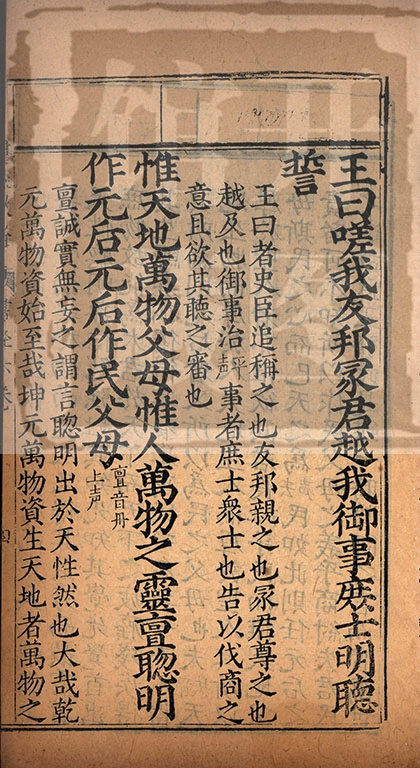 王曰嗟我友邦冡君越我御事庶士明聴
誓
王曰者史臣追稱之也友邦親之也冡君尊之也
越及也御事治平声事者庶士衆士也告以伐商之
意且欲其聴之審也
惟天地萬物父母惟人萬物之靈亶聦明
作元后元后作民父母亶音丹上声
亶誠實無妄之謂言聦明出於天性然也大哉乾
元萬物資始至哉坤元萬物資生天地者萬物之
四